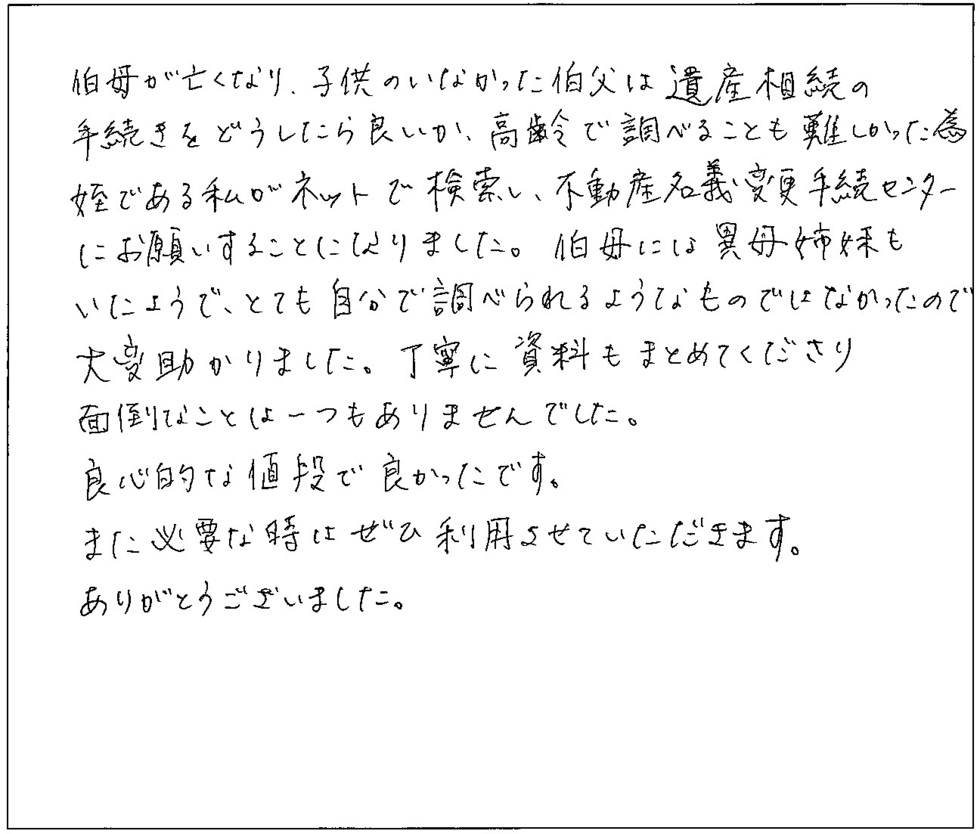 伯母が亡くなり、子供のいなかった伯父は遺産相続の
手続きをどうしたら良いか、高齢で調べることも難しかった為
姪である私がネットで検索し、不動産名義変更手続センター
にお願いすることになりました。伯母には異母姉妹も
いたようで、とても自分で調べられるようなものではなかったので
大変助かりました。丁寧に資料もまとめてくださり
面倒なことは一つもありませんでした。
良心的な値段で良かったです。
また必要な時はぜひ利用させていただきます。
ありがとうございました。